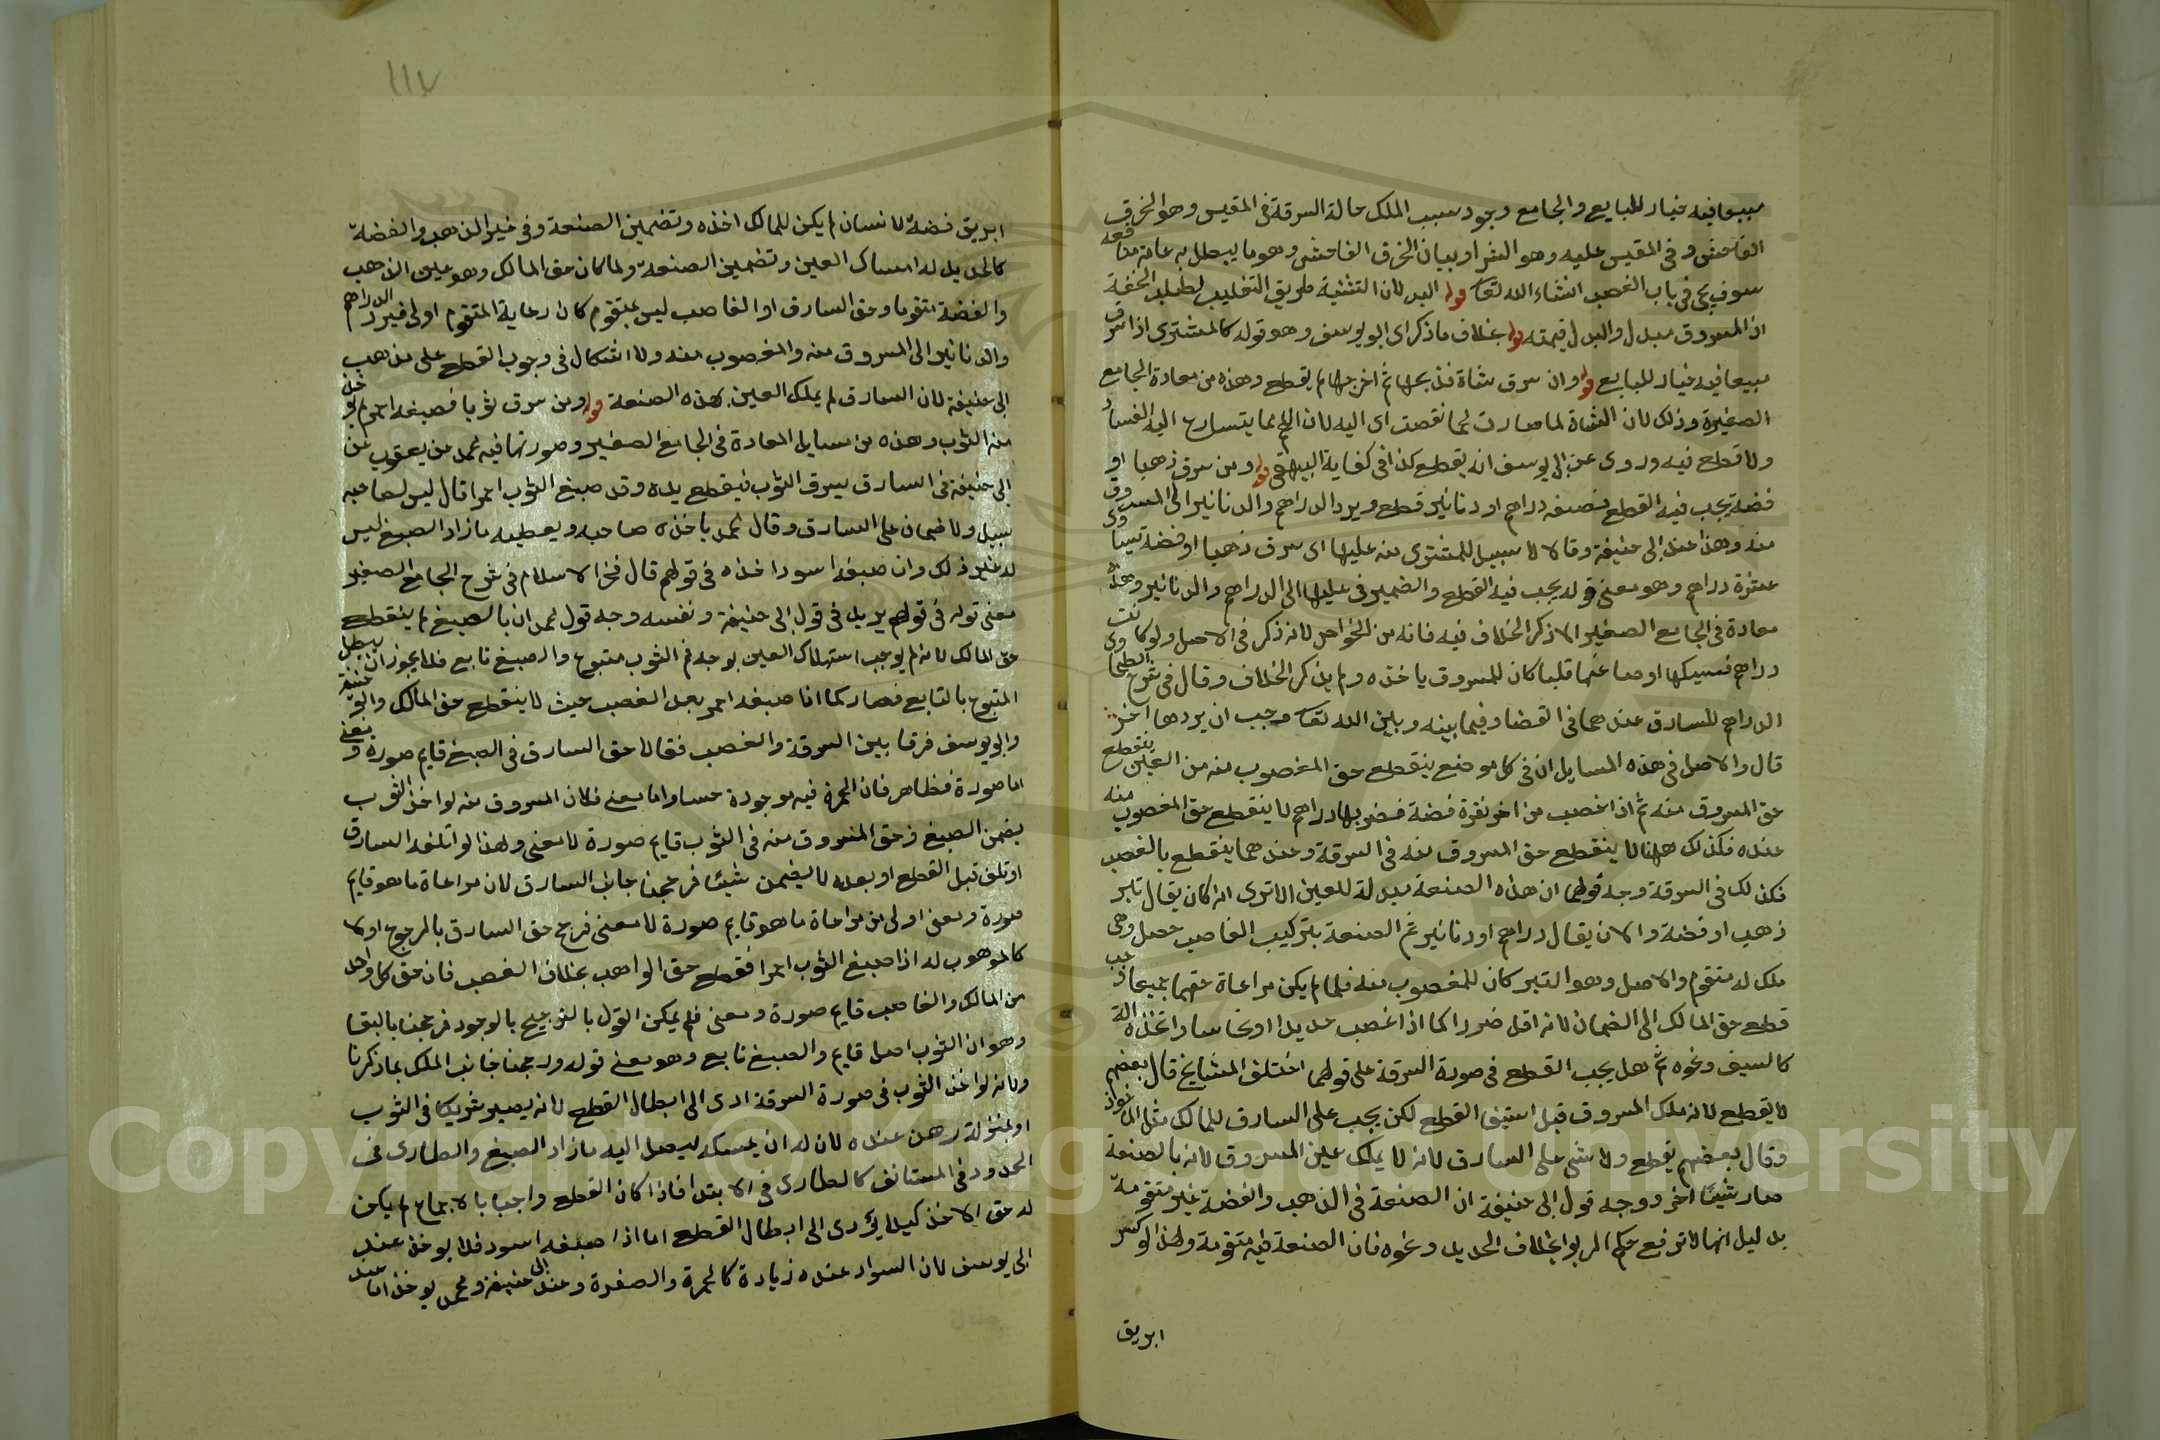 مبيعا فيه خيار للبايع والجامع وجود سبب الملك حالة السرقة في المقيس وهو الخرق
الفاحش وفي المقيس عليه وهو الشراو بيان الخرق الفاحش وهو ما يبطل به عامة منافعه
سوف يجى في باب الغصب انشاء الله تعا قوله البدلان التثنية طريق التغليب لطلب الخفة
اذ المسروق مبدل والبدل قيمته قوله بخلاف ما ذكر اى ابو يوسف وهو قوله كالمشترى اذا سرق
مبيعا فيه خيار للبايع قوله وان سرق شاة فذبحها ثم اخرجها لم يقطع وهذه من معادة الجامع
الصغير وذلك لان الشاة لما صارت لحما نقصت اى اليه لان اللحم مما يتسارع اليه الفساد
ولا قطع فيه وروى عن ابى يوسف انه يقطع كذا في كفاية البيهقى قوله ومن سرق ذهبا او
فضة يجب فيه القطع فصنعه دراهم او دنانير قطع ويرد الدراهم والدنانير الى المسروق
منه وهذا عند ابى حنيفة وقالا لا سبيل للمشترى منه عليها اى سرق ذهبا او فضة تساوى
عشرة دراهم وهو معنى قوله يجب فيه القطع والضمير في عليها الى الدراهم والدنانير وهذه
معادة في الجامع الصغير الا ذكر الخلاف فيه فانه من الخواص لانه ذكر في الاصل ولو كانت
دراهم فسبكها او صاغها قلبا كان للمسروق ياخذه ولم يذكر الخلاف وقال في شرح الطحاوى
الدراهم للسارق عندهما في القضا وفيما بينه وبين الله تعا وجب ان يردها
قال والاصل في هذه المسايل ان في كل موضع ينقطع حق المغصوب منه من العين ينقطع
حق المسروق منه ثم اذا غصب من اخر نقرة فضة فضربها دراهم لا ينقطع حق المغصوب منه
عنده فكذلك ههنا لا ينقطع حق المسروق منه في السرقة وعندهما ينقطع بالغصب
فكذلك في السرقة وجه قولهما ان هذه الصنعة مبدلة للعين الا ترى انه كان يقال تبر
ذهب او فضة والان يقال دراهم او دنانير ثم الصنعة بتركيب الغاصب حصل وهى
ملك له متقوم والاصل وهو التبر كان للمغصوب منه فلما لم يكن مراعاة حقهما جميعا وجب
قطع حق المالك الى الضمان لانه اقل ضررا كما اذا غصب حديدا او نحاسا واتخذه الة
كالسيف ونحوه ثم هل يجب القطع في صورة السرقة على قولهما اختلف المشايخ قال بعضهم
لا يقطع لانه ملك المسروق قبل استيفا القطع لكن يجب على السارق للمالك مثل الماخوذ
وقال بعضهم يقطع ولا شى على السارق لانه لا يملك عين المسروق لانه بالصنعة
صار شيئا اخر ووجه قول ابى حنيفة ان الصنعة في الذهب والفضة غير متقومة
بدليل انها لا ترفع حكم الربوا بخلاف الحديد ونحوه فان الصنعة فيه متقومة ولهذا لو كسر
ابريق
١١٧
ابريق فضة لانسان لم يكن للمالك اخذه وتضمين الصنعة وفي غير الذهب والفضة
كالحديد له امساك العين وتضمين الصنعة ولما كان حق المالك وهو عين الذهب
والفضة متقوما وحق السارق او الغاصب ليس بمتقوم كان رعاية المتقوم اولى فيرد الدراهم
والدنانير الى المسروق منه والمغصوب منه ولا اشكال في وجوب القطع على مذهب
ابى حنيفة لان السارق لم يملك العين بهذه الصنعة قوله ومن سرق ثوبا فصبغه احمر لم يوخذ
منه الثوب وهذه من مسايل المعادة في الجامع الصغير وصورتها فيه محمد عن يعقوب عن
ابى حنيفة في السارق يسرق الثوب فيقطع يده وقد صبغ الثوب احمرا قال ليس لصاحبه
سبيل ولا ضمان على السارق وقال محمد ياخذه صاحبه ويعطيه ما زاد الصبغ ليس
له غير ذلك وان صبغه اسود اخذه في قولهم قال فخر الاسلام في شرح الجامع الصغير
معنى قوله في قولهم يريد في قول ابى حنيفة ونفسه وجه قول محمد ان بالصبغ لم ينقطع
حق المالك لانه لم يوجب استهلاك العين بوجه ثم الثوب متبوع والصبغ تابع فلا يجوز ان يبطل
المتبوع بالتابع فصار كما اذا صبغه احمر بعد الغصب حيث لا ينقطع حق المالك وابو حنيفة
وابو يوسف فرقا بين السرقة والغصب فقالا حق السارق في الصبغ قايم صورة ومعنى
اما صورة فظاهر فان الحمرة فيه موجودة حسا واما معنى فلان المسروق منه لو اخذ الثوب
يضمن الصبغ وحق المسروق منه في الثوب قايم صورة لا معنى ولهذا لو اتلفه السارق
او تلف قبل القطع او بعده لا يضمن شيئا فرجحنا جانب السارق لان مراعاة ما هو قايم
صورة ومعنى اولى من مراعاة ما هو قايم صورة لا معنى فرجح حق السارق بالمرجوح اولا
كالموهوب له اذا صبغ الثوب احمرا فقطع حق الواهب بخلاف الغصب فان حق كل واحد
من المالك والغاصب قايم صورة ومعنى فلم يمكن القول بالترجيح بالوجود فرجحنا بالبقا
وهو ان الثوب اصل قايم والصبغ تابع وهو معنى قوله ورجحنا جانب الملك بما ذكرنا
ولانه لو اخذ الثوب في صورة السرقة ادى الى ابطال القطع لانه يصير شريكا في الثوب
او بمنزلة رهن عنده لان له ان يمسكه ليصل اليه ما زاد الصبغ والطارى في
الحدود في المستانف كالطارى في الابتدا فاذا كان القطع واجبا بالاجماع لم يكن
له حق الاخذ كيلا يؤدى الى ابطال القطع اما اذا صبغه اسود فلا يوخذ عند
ابى يوسف لان السواد عنده زيادة كالحمرة والصفرة وعند ابى حنيفة ومحمد يوخذ اما عند
Copyright © King Saud University